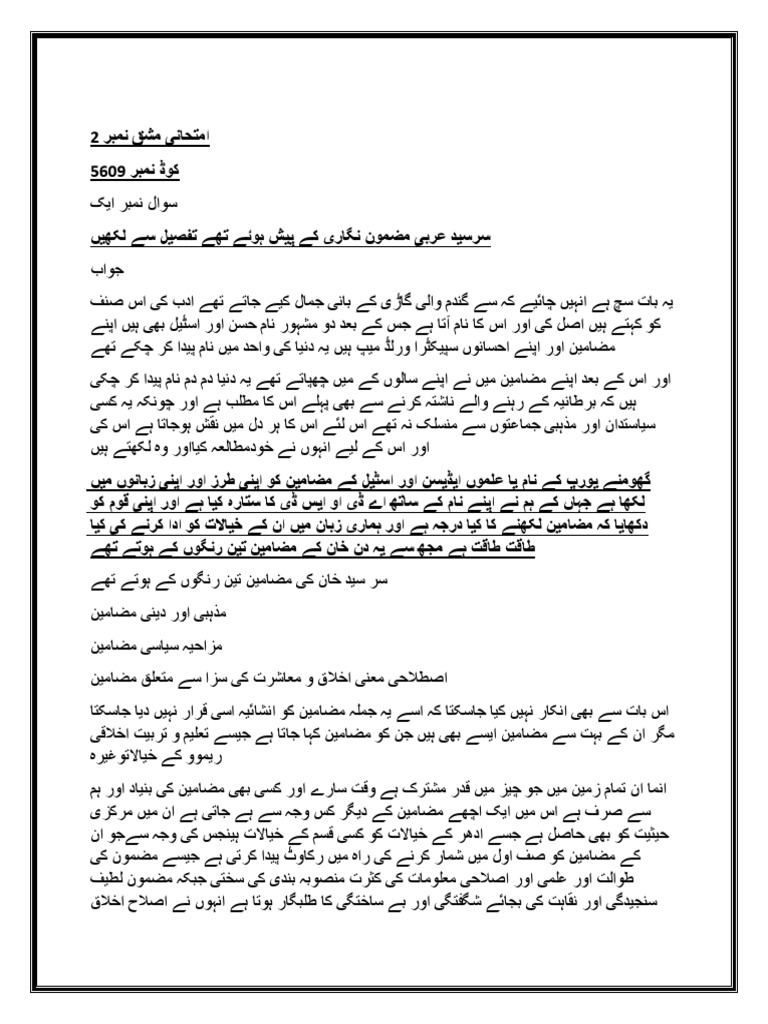 امتحانی مشق نمبر 2
کوڈ نمبر 5609
سوال نمبر ایک
سرسید عربی مضمون نگاری کے پیش ہوئے تھے تفصیل سے لکھیں
جواب
یہ بات سچ ہے انہیں چائیے کہ سے گندم والی گاڑی کے بانی جمال کیے جاتے تھے ادب کی اس صنف
کو کہتے ہیں اصل کی اور اس کا نام آتا ہے جس کے بعد دو مشہور نام حسن اور اسٹیل بھی ہیں اپنے
مضامین اور اپنے احسانوں سپیکٹرا ورلڈ میپ ہیں یہ دنیا کی واحد میں نام پیدا کر چکے تھے
اور اس کے بعد اپنے مضامین میں نے اپنے سالوں کے میں چھپاتے تھے یہ دنیا دم دم نام پیدا کر چکی
ہیں کہ برطانیہ کے رہنے والے ناشتہ کرنے سے بھی پہلے اس کا مطلب ہے اور چونکہ یہ کسی
سیاستدان اور مذہبی جماعتوں سے منسلک نہ تھے اس لئے اس کا ہر دل میں نقش ہوجاتا ہے اس کی
اور اس کے لیے انہوں نے خودمطالعہ کیااور وہ لکھتے ہیں
گھومنے یورپ کے نام یا علموں ایڈیسن اور اسٹیل کے مضامین کو اپنی طرز اور اپنی زبانوں میں
لکھا ہے جہاں کے ہم نے اپنے نام کے ساتھ اے ڈی او ایس ڈی کا ستارہ کیا ہے اور اپنی قوم کو
دکھایا کہ مضامین لکھنے کا کیا درجہ ہے اور ہماری زبان میں ان کے خیالات کو ادا کرنے کی کیا
طاقت طاقت ہے مجھ سے یہ دن خان کے مضامین تین رنگوں کے ہوتے تھے
سر سید خان کی مضامین تین رنگوں کے ہوتے تھے
مذہبی اور دینی مضامین
مزاحیہ سیاسی مضامین
اصطلاحی معنی اخلاق و معاشرت کی سزا سے متعلق مضامین
اس بات سے بھی انکار نہیں کیا جاسکتا کہ اسے یہ جملہ مضامین کو انشائیہ اسی قرار نہیں دیا جاسکتا
مگر ان کے بہت سے مضامین ایسے بھی ہیں جن کو مضامین کہا جاتا ہے جیسے تعلیم و تربیت اخلاقی
ریموو کے خیالاتوغیرہ
انما ان تمام زمین میں جو چیز میں قدر مشترک ہے وقت سارے اور کسی بھی مضامین کی بنیاد اور ہم
سے صرف ہے اس میں ایک اچھے مضامین کے دیگر کس وجہ سے ہے جاتی ہے ان میں مرکزی
حیثیت کو بھی حاصل ہے جسے ادھر کے خیالات کو کسی قسم کے خیالات ہینجس کی وجہ سےجو ان
کے مضامین کو صف اول میں شمار کرنے کی راہ میں رکاوٹ پیدا کرتی ہے جیسے مضمون کی
طوالت اور علمی اور اصلاحی معلومات کی کثرت منصوبہ بندی کی سختی جبکہ مضمون لطیف
سنجیدگی اور نقاہت کی بجائے شگفتگی اور بے ساختگی کا طلبگار ہوتا ہے انہوں نے اصلاح اخلاق